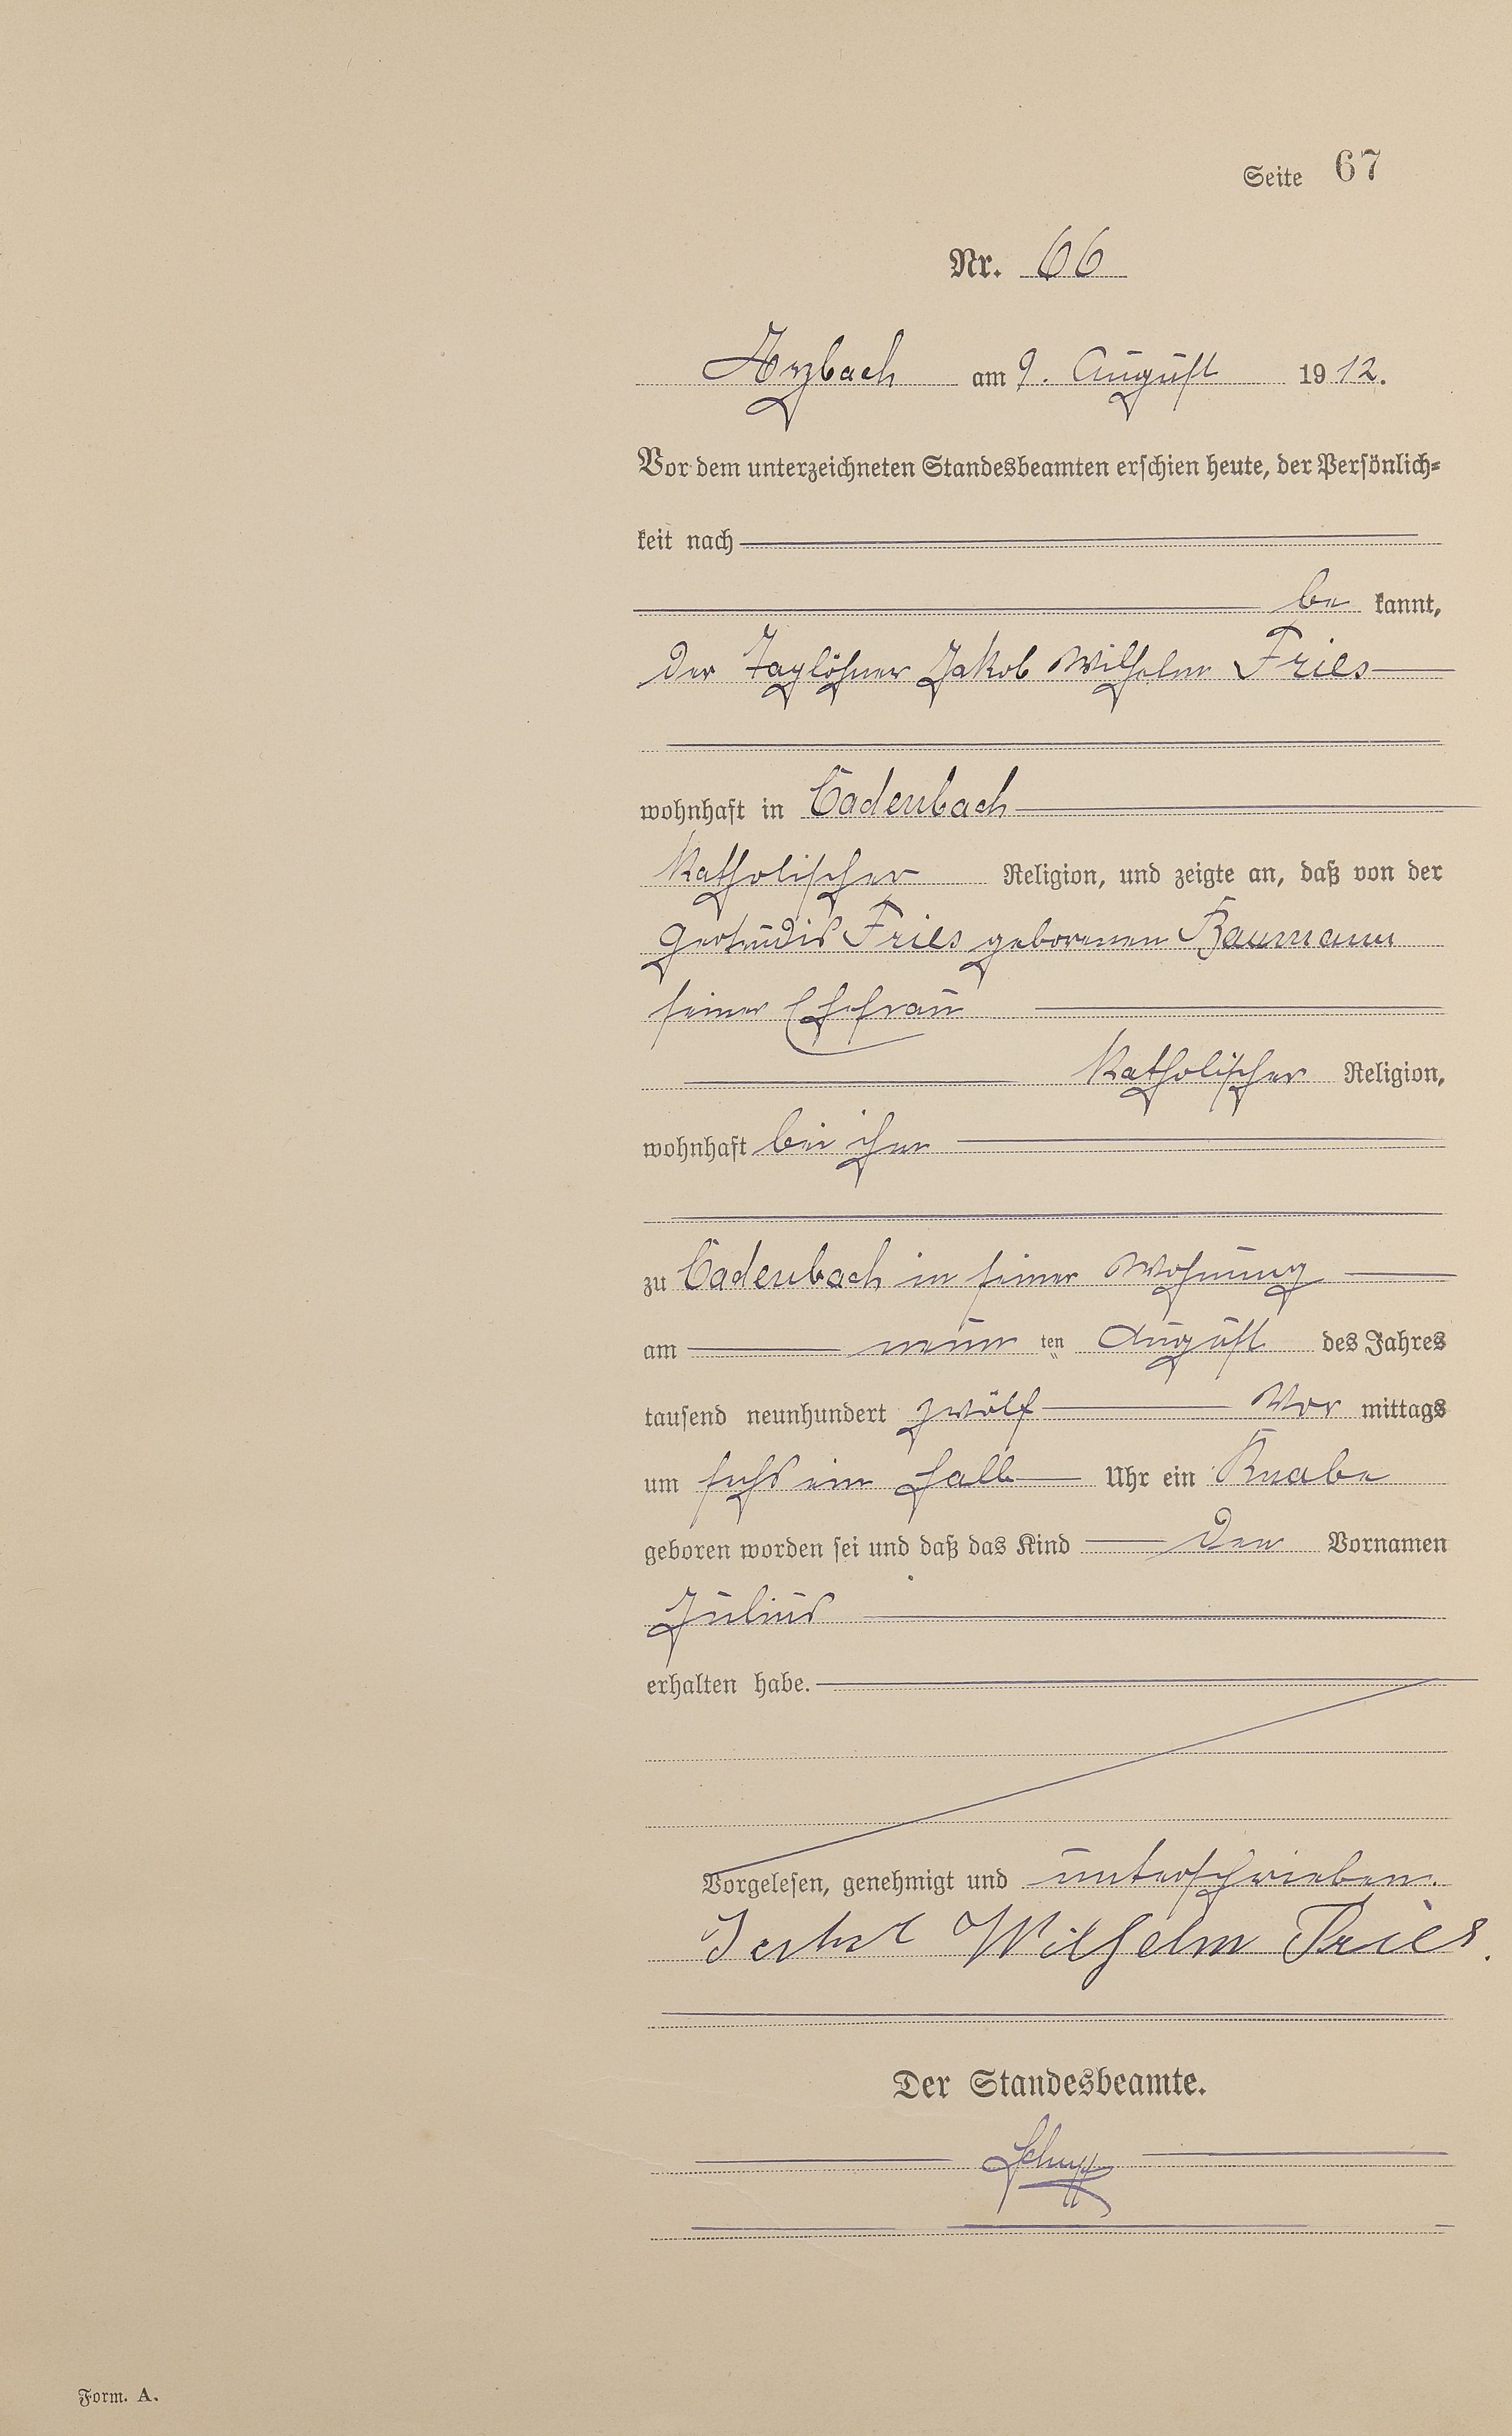 Seite 67
Nr. 66
Arzbach am 9. August 1912.
Vor dem unterzeichneten Standesbeamten erschien heute, der Persönlich-
keit nach
be kannt,
der Taglöhner Jakob Wilhelm Fries
wohnhaft in Cadenbach
katholischer Religion, und zeigte an, daß von der
Gertrudis Fries geborenen Baumann
seiner Ehefrau
katholischer Religion,
wohnhaft bei ihm
zu Cadenbach in seiner Wohnung
am neun ten August des Jahres
tausend neunhundert zwölf Vor mittags
um sechs ein halb Uhr ein Knabe
geboren worden sei und daß das Kind den Vornamen
Julius
erhalten habe.
Vorgelesen, genehmigt und unterschrieben.
Jakob Wilhelm Fries.
Der Standesbeamte.
Schupp
Form. A.